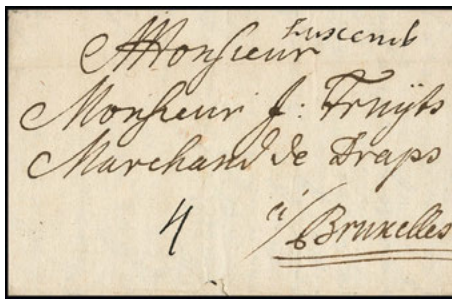 Luxemb
A Monsieur
Monsieur J: Truÿts
Marchand de Draps
4
a/Bruxelles